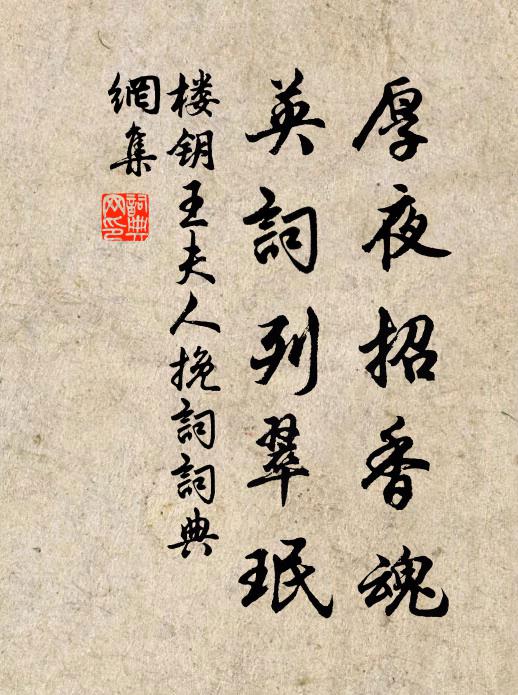 厚夜招香魂
英詞列翠珉
楼钥王夫人挽詞詞典
網集
詞典网印